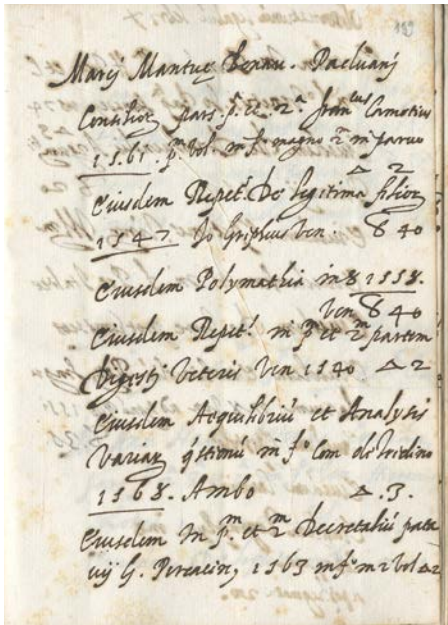 159
Marcj Mantuę Benau. Paduanj
Consilior pars. pa. et. 2a franus Camotius
1561. pm vol. in fo magno 2m in paruo
Δ 2
Eiusdem Repet. De legitima filior
1547 Jo Griphius ven. 8 40
Eiusdem Polymathia in 8 1558.
Ven 8 40
Eiusdem Repet. in pm et 2m partem
Digestj veteris Ven 1540 Δ 2
Eiusdem Aequilibriū et Analysis
Variar qstionū in fo Com de Tridino
1568. Ambo Δ .3.
Eiusdem In pm. et 2m Decretaliū pata
uij G. Percacin, 1563 in fo in 2 vol Δ 2